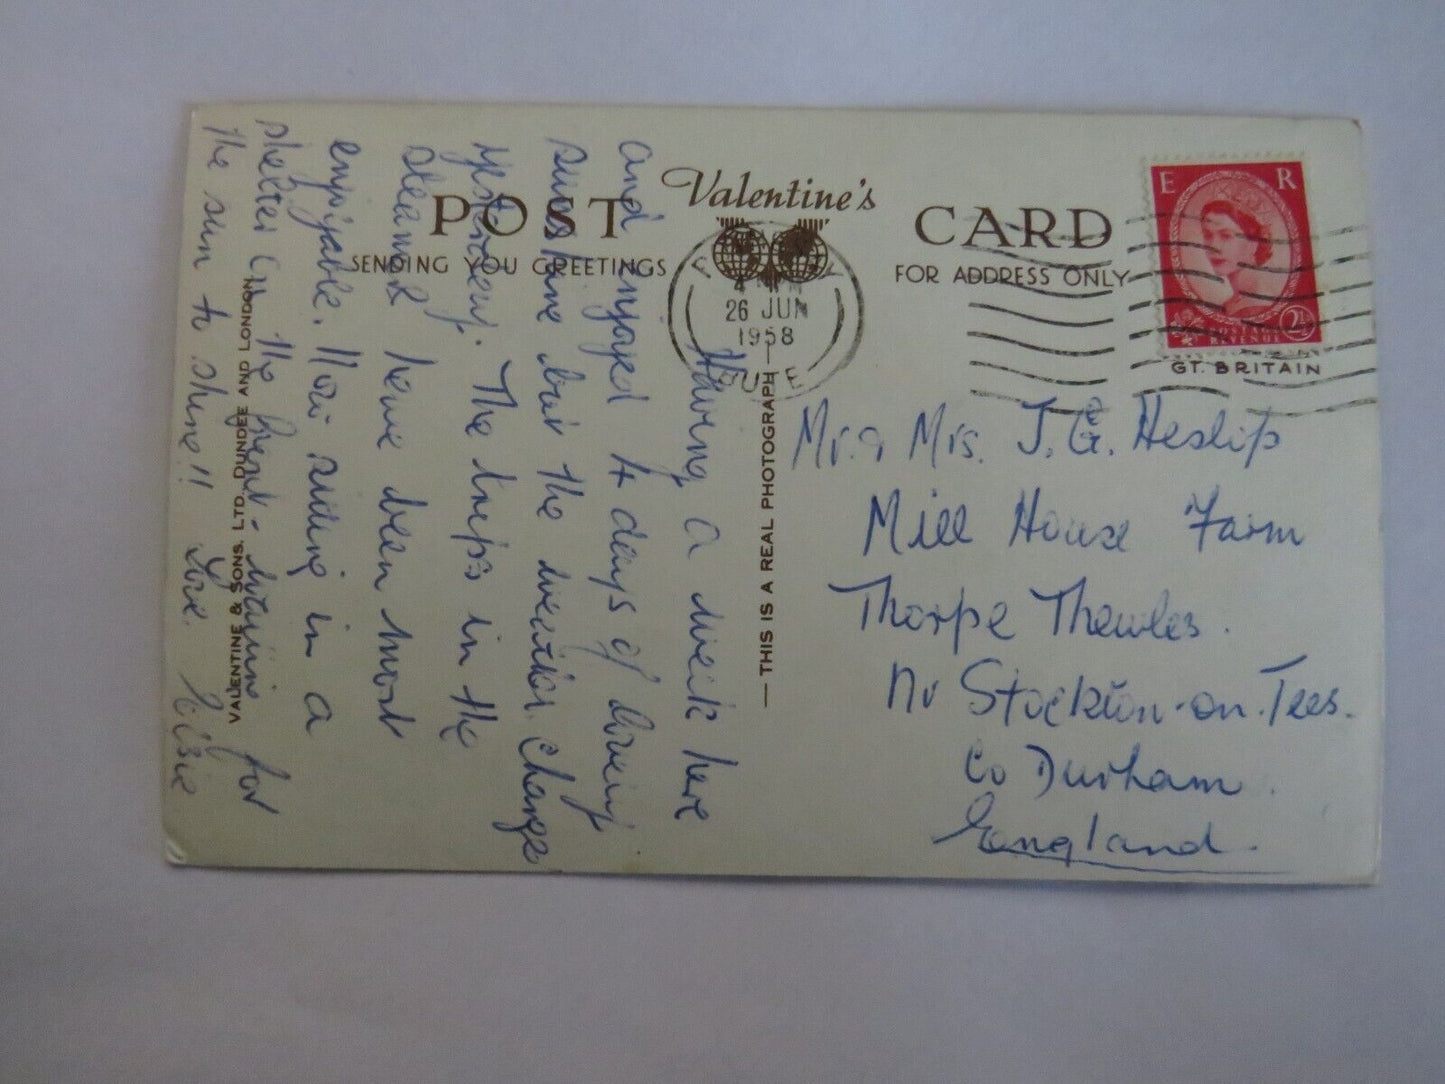 POST Valentine's CARD
SENDING YOU GREETINGS
FOR ADDRESS ONLY
4 PM
26 JUN
1958
BUTE
E R
POSTAGE
REVENUE
2½
GT. BRITAIN
Having a week here
and enjoyed 4 days of
sunshine but the weather change
yesterday. The trips in the
steamer have been most
enjoyable. Now sitting in a
shelter on the front - waiting for
the sun to shine!! Love. Elsie
— THIS IS A REAL PHOTOGRAPH —
VALENTINE & SONS. LTD. DUNDEE AND LONDON
Mr. & Mrs. J. G. Heslop
Mill House Farm
Thorpe Thewles.
Nr Stockton-on-Tees.
Co Durham.
England.